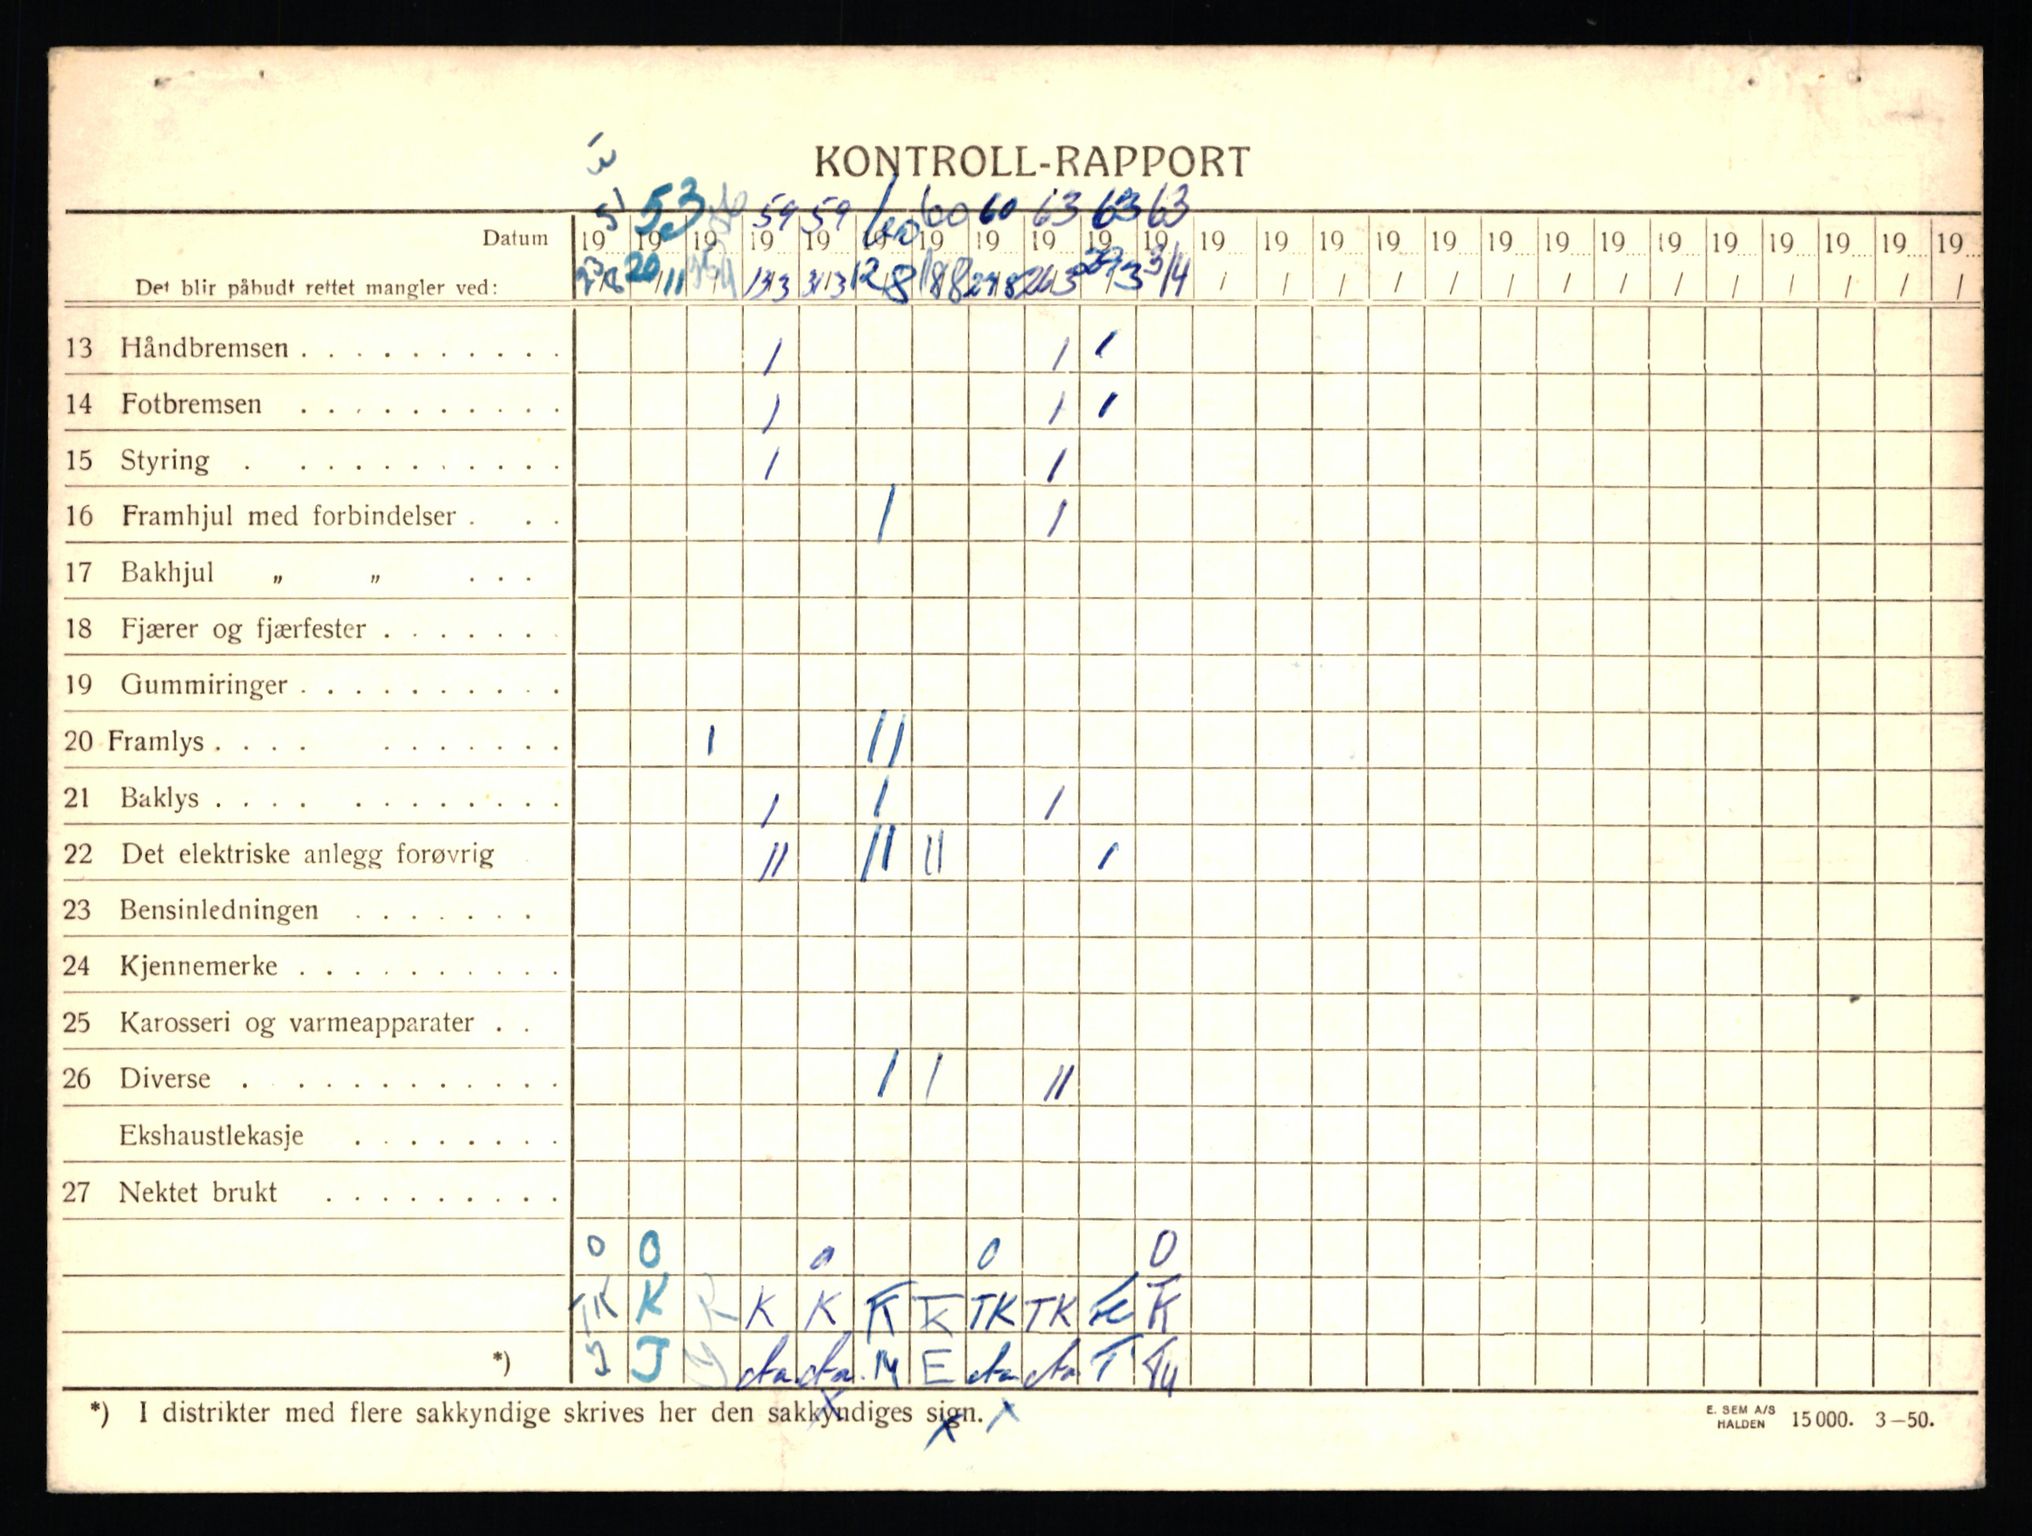 KONTROLL-RAPPORT
51 53 59 59 60 60 60 63 63 63
Datum 19 19 19 19 19 19 19 19 19 19 19 19 19 19 19 19 19 19 19 19 19 19 19 19 19
Det blir påbudt rettet mangler ved: 20/11 13/3 31/3 12/8 18/8 27/8 26/3 3/4 / / / / / / / / / / / / / /
13 Håndbremsen . . . . . . . . . . 1 1 1
14 Fotbremsen . . . . . . . . . . 1 1 1
15 Styring . . . . . . . . . . . 1 1
16 Framhjul med forbindelser . . . 1 1
17 Bakhjul „ „ . . .
18 Fjærer og fjærfester . . . . . . .
19 Gummiringer . . . . . . . . . .
20 Framlys . . . . . . . . . . . 1 11
21 Baklys . . . . . . . . . . . . 1 1 1
22 Det elektriske anlegg forøvrig 11 11 11 1
23 Bensinledningen . . . . . . .
24 Kjennemerke . . . . . . . . . .
25 Karosseri og varmeapparater . .
26 Diverse . . . . . . . . . . . 1 1 11
Ekshaustlekasje . . . . . . . .
27 Nektet brukt . . . . . . . . .
0 0 0 0 0
TK K K K K TK TK TK TK
*) J J E T
*) I distrikter med flere sakkyndige skrives her den sakkyndiges sign.
E. SEM A/S
HALDEN 15000. 3-50.